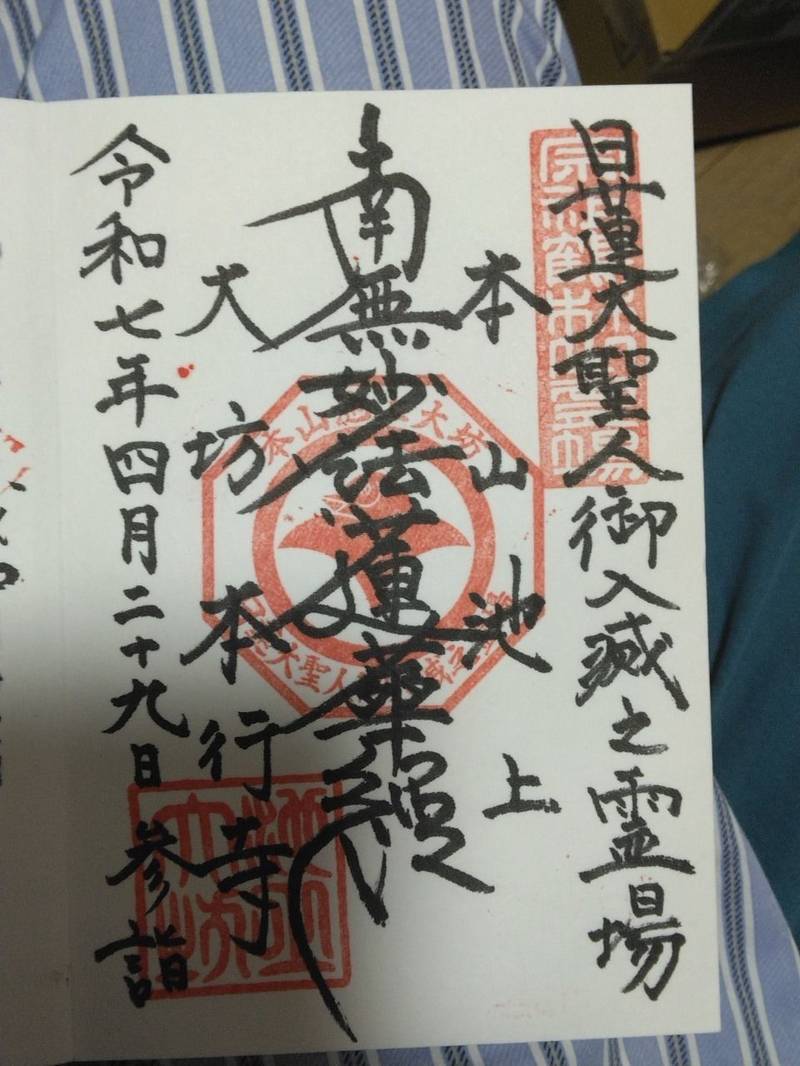 日蓮大聖人御入滅之霊場
本山池上
南無妙法蓮華經
大坊本行寺
令和七年四月二十九日参詣